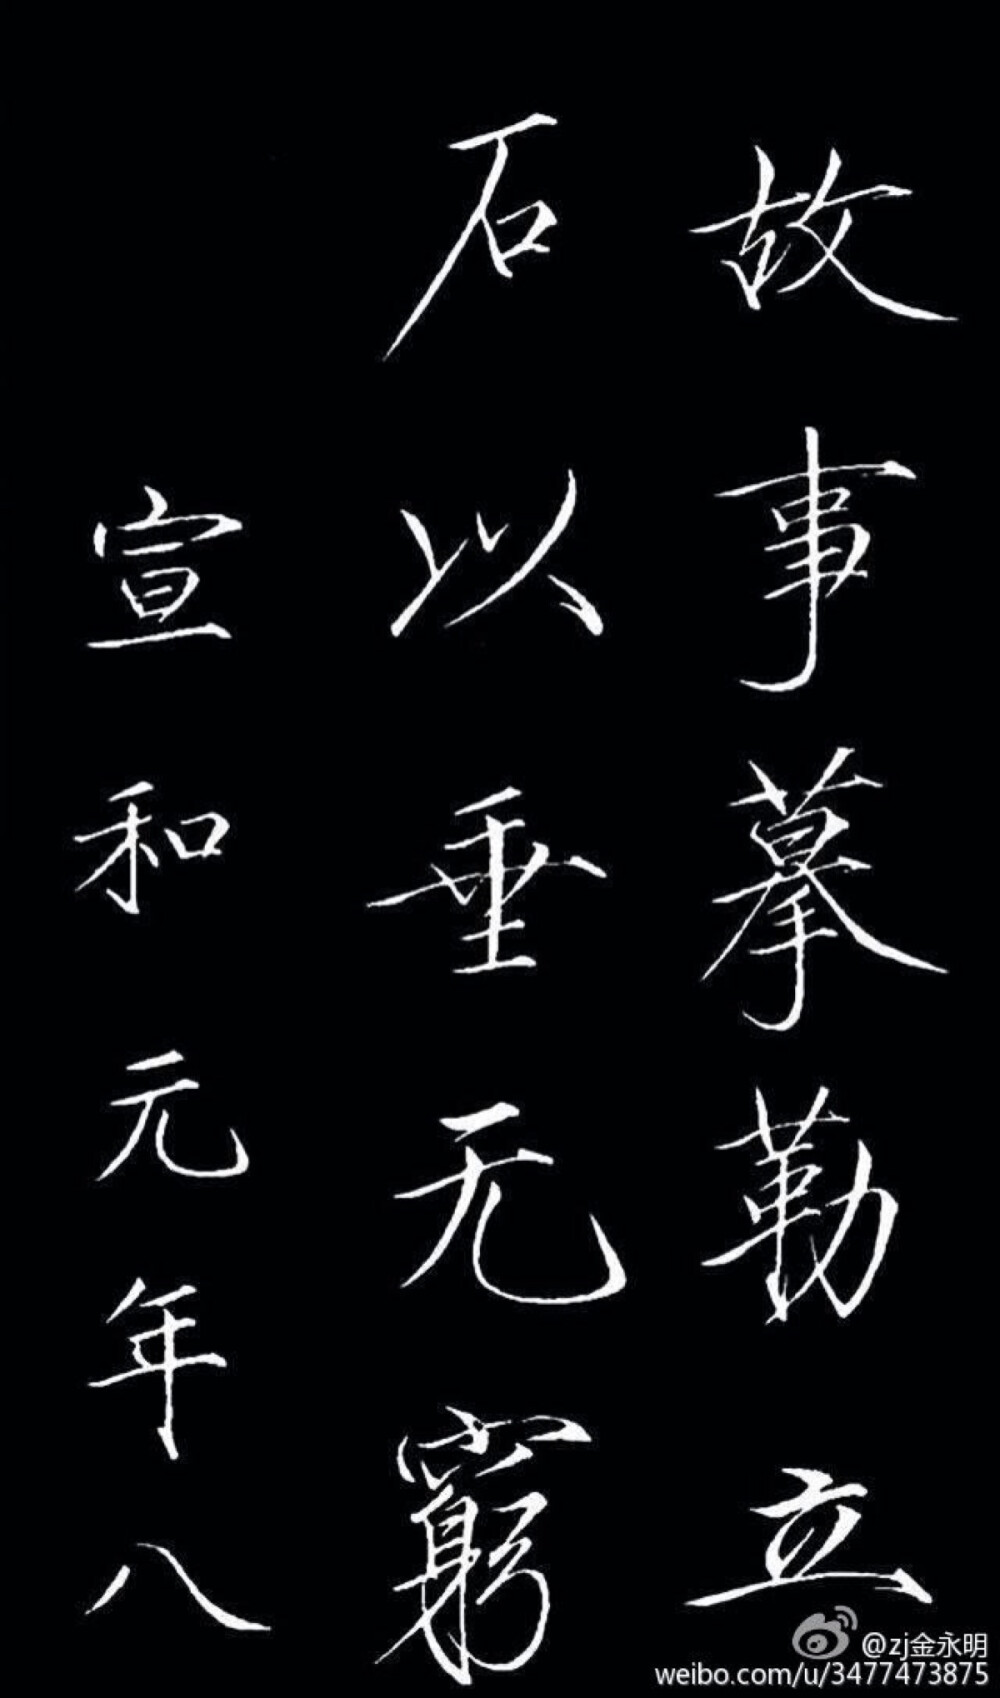 故事摹勒立
石以垂无窮
宣和元年八
@zj金永明
weibo.com/u/3477473875